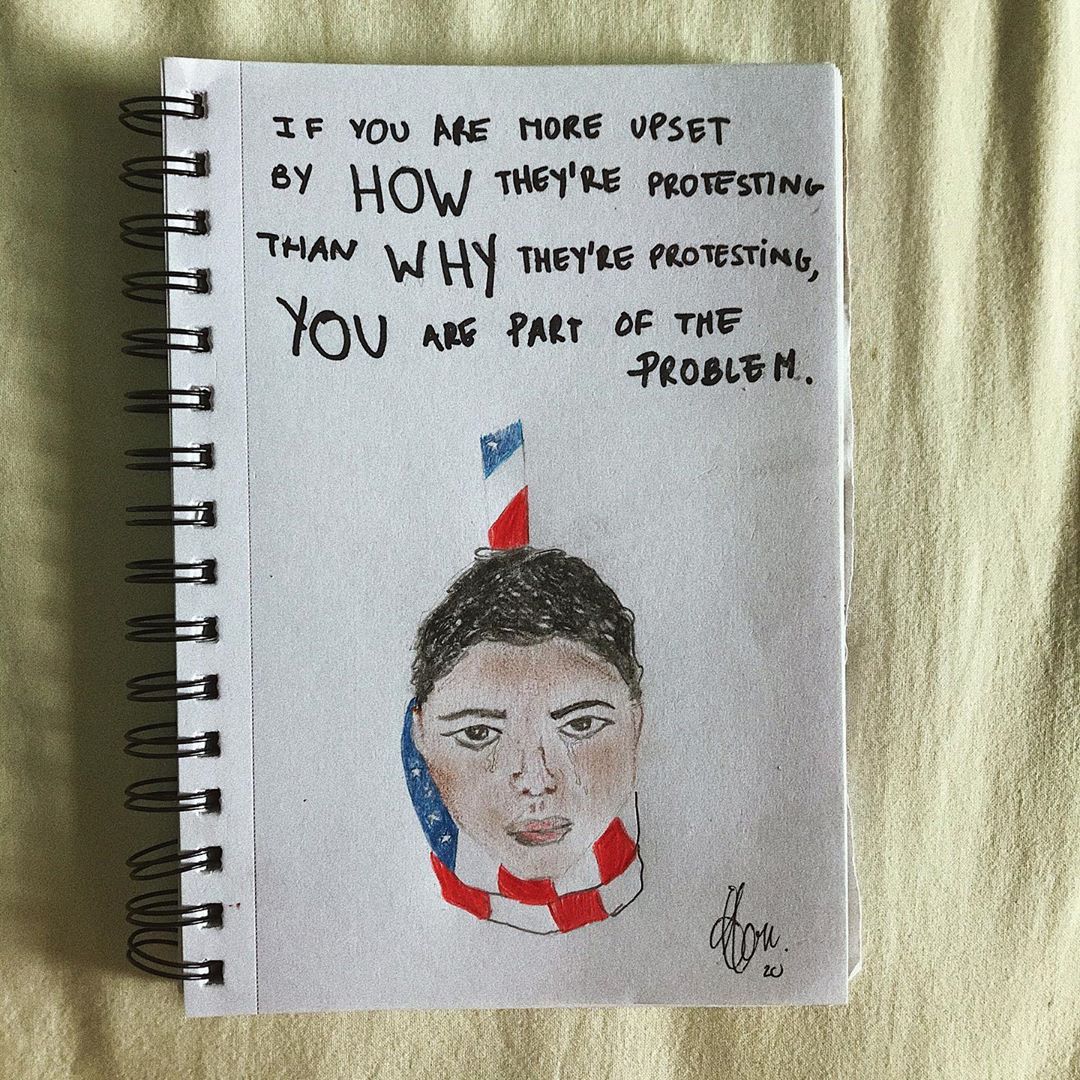 IF YOU ARE MORE UPSET
BY HOW THEY'RE PROTESTING
THAN WHY THEY'RE PROTESTING,
YOU ARE PART OF THE
PROBLEM.
20